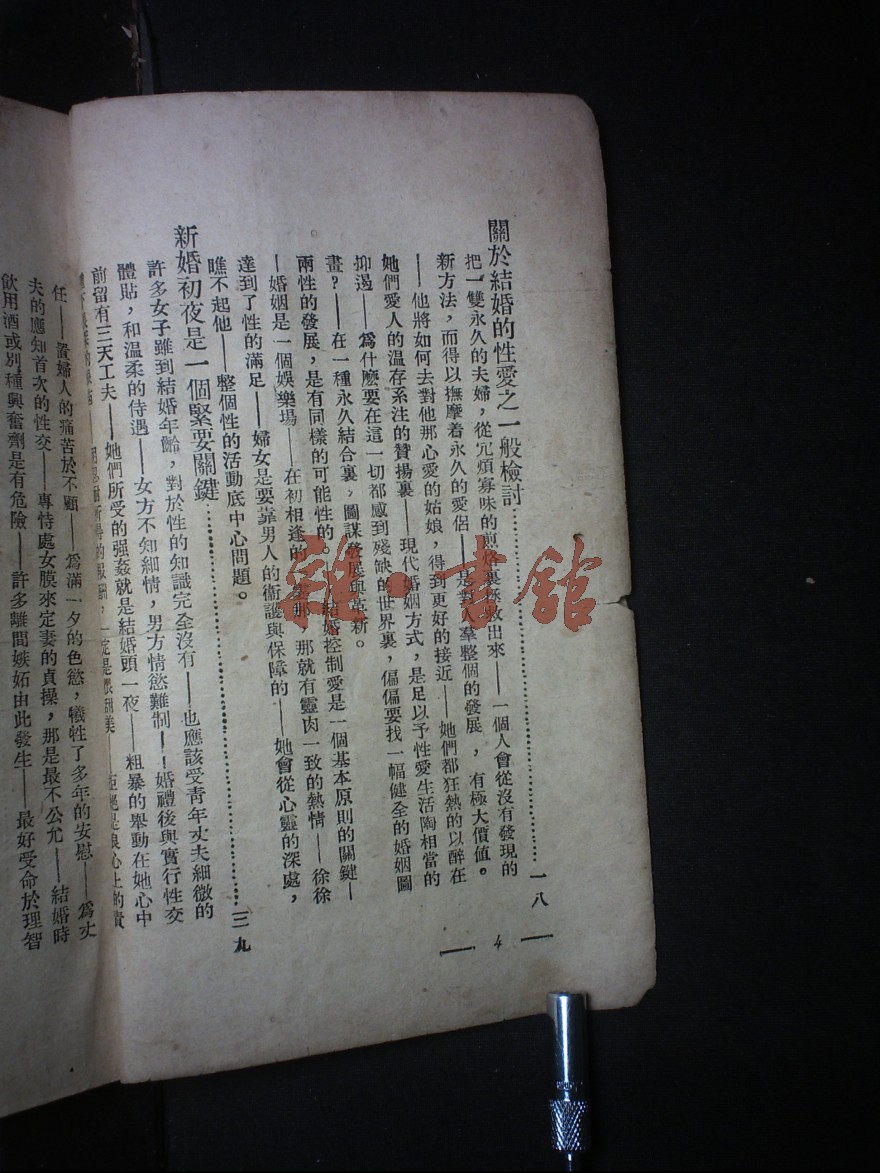 關於結婚的性愛之一般檢討…………一八
把一雙永久的夫婦，從冗煩寡味的煎熬裏拯救出來——一個人會從沒有發現的
新方法，而得以撫摩着永久的愛侶——是對人羣整個的發展，有極大價值。
——他將如何去對他那心愛的姑娘，得到更好的接近——她們都狂熱的以醉在
她們愛人的温存系注的贊揚裏——現代婚姻方式，是足以予性愛生活陶相當的
抑遏——爲什麽要在這一切都感到殘缺的世界裏，偏偏要找一幅健全的婚姻圖
畫？——在一種永久結合裏，圖謀發展與革新。
兩性的發展，是有同樣的可能性的。——結婚控制愛是一個基本原則的關鍵—
—婚姻是一個娛樂場——在初相逢的刹那，那就有靈肉一致的熱情——徐徐
達到了性的滿足——婦女是要靠男人的衞護與保障的——她會從心靈的深處，
瞧不起他——整個性的活動底中心問題。
新婚初夜是一個緊要關鍵…………三九
許多女子雖到結婚年齡，對於性的知識完全沒有——也應該受青年丈夫細微的
體貼，和溫柔的待遇——女方不知細情，男方情慾難制——婚禮後與實行性交
前留有三天工夫——她們所受的强姦就是結婚頭一夜——粗暴的舉動在她心中
所得的報酬，一定是很甜美——拒絕是良心上的責
任——置婦人的痛苦於不顧——爲滿一夕的色慾，犧牲了多年的安慰——爲丈
夫的應知首次的性交——專恃處女膜來定妻的貞操，那是最不公允——結婚時
飲用酒或別種興奮劑是有危險——許多離間嫉妬由此發生——最好受命於理智
4
雜·書館